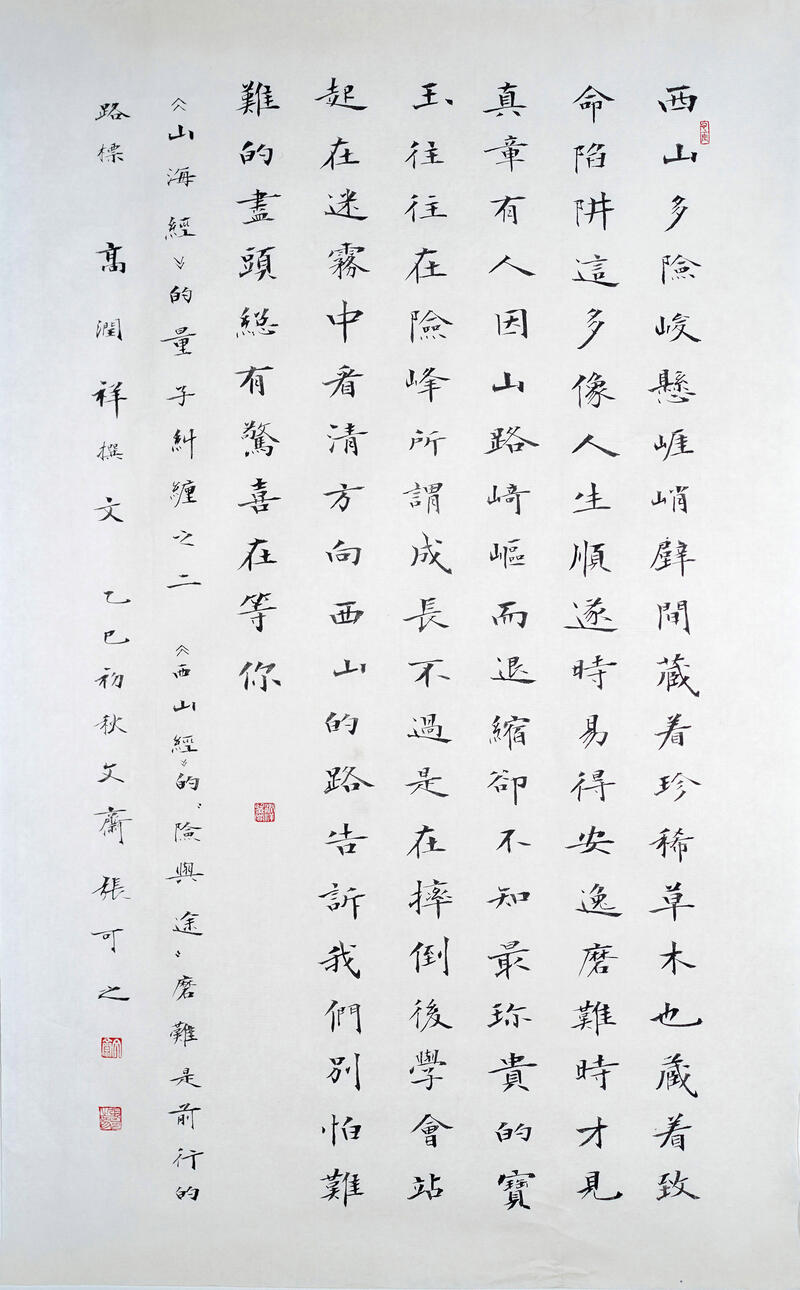 西山多險峻懸崕峭壁間藏着珍稀草木也藏着致
命陷阱這多像人生順遂時易得安逸磨難時才見
真章有人因山路崎嶇而退縮卻不知最珎貴的寶
玉往往在險峰所謂成長不過是在摔倒後學會站
起在迷霧中看清方向西山的路告訴我們別怕難
難的盡頭總有驚喜在等你
《山海經》的量子糾纏之二 《西山經》的“險與途”磨難是前行的
路標 高潤祥撰文 乙巳初秋文齋張可之